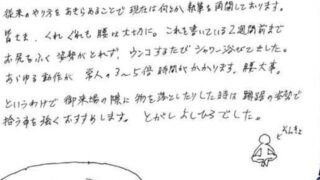 従来のやり方をあきらめることで現在は何とか執筆を再開しております。
皆さま、くれぐれも腰は大切に。これを書いている2週間前まで
お尻をふく姿勢がとれず、ウンコするたびシャワー浴びてました。
あらゆる動作が常人の3〜5倍時間がかかります。腰、大事。
というわけで御来場の際に物を落としたりした時は蹲踞の姿勢で
拾う事を強くおすすめします。とがしよしひろでした。
そんきょ